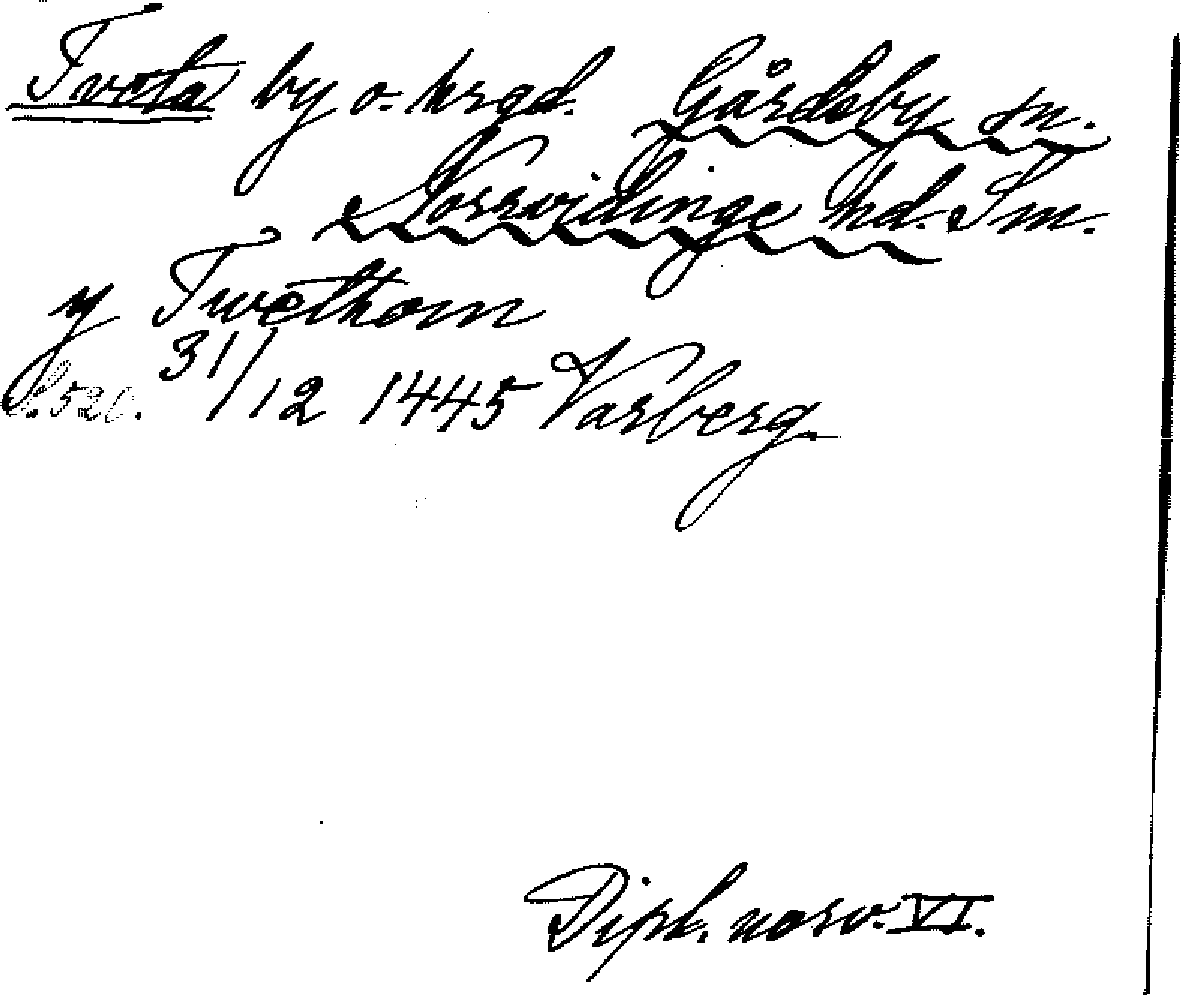 Tveta by o. hrgd. Gårdsby sn.
Norrvidinge hd. Sm.
y Twethom
S. 520. 31/12 1445 Varberg.
Dipl. norv. VI.